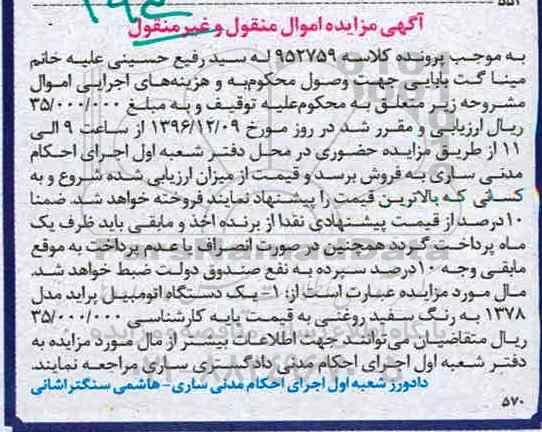 ۵۵۱
آگهی مزایده اموال منقول و غیر منقول
به موجب پرونده کلاسه ۹۵۲۷۵۹ له سید رفیع حسینی علیه خانم
مینا گت بابایی جهت وصول محکوم‌به و هزینه‌های اجرایی اموال
مشروحه زیر متعلق به محکوم‌علیه توقیف و به مبلغ ۳۵/۰۰۰/۰۰۰
ریال ارزیابی و مقرر شد در روز مورخ ۱۳۹۶/۱۲/۰۹ از ساعت ۹ الی
۱۱ از طریق مزایده حضوری در محل دفتر شعبه اول اجرای احکام
مدنی ساری به فروش برسد و قیمت از میزان ارزیابی شده شروع و به
کسانی که بالاترین قیمت را پیشنهاد نمایند فروخته خواهد شد. ضمنا
۱۰درصد از قیمت پیشنهادی نقدا از برنده اخذ و مابقی باید ظرف یک
ماه پرداخت گردد همچنین در صورت انصراف یا عدم پرداخت به موقع
مابقی وجه ۱۰درصد سپرده به نفع صندوق دولت ضبط خواهد شد.
مال مورد مزایده عبارت است از: ۱- یک دستگاه اتومبیل پراید مدل
۱۳۷۸ به رنگ سفید روغنی به قیمت پایه کارشناسی ۳۵/۰۰۰/۰۰۰
ریال متقاضیان می‌توانند جهت اطلاعات بیشتر از مال مورد مزایده به
دفتر شعبه اول اجرای احکام مدنی دادگستری ساری مراجعه نمایند.
دادورز شعبه اول اجرای احکام مدنی ساری- هاشمی سنگتراشانی
۵۷۰